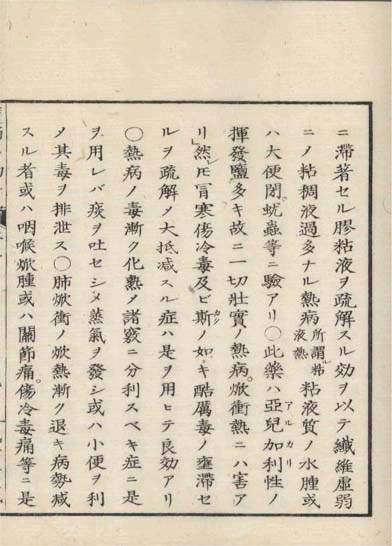 ニ滯著セル膠粘液ヲ疏解スルノ効ヲ以テ纎維虛弱
ニノ粘稠液過多ナル熱病所謂粘液熱粘液質ノ水腫或
ハ大便閉。蚘蟲等ニ驗アリ〇此藥ハ亞兒加利性ノアルカリ
揮發鹽多キ故ニ一切壯實ノ熱病。焮衝熱ニハ害ア
リ然𪜈冒寒傷冷毒及ビ斯ノ如カクキ酷厲毒ノ壅滯セ
ルヲ疏解メ大抵減スル症ハ是ヲ用ヒテ良効アリ
〇熱病ノ毒漸ク化熟メ諸竅ニ分利スベキ症ニ是
ヲ用レバ痰ヲ吐セシメ蒸氣ヲ發シ或ハ小便ヲ利
メ其毒ヲ排泄ス〇肺焮衝ノ焮熱漸ク退キ病勢減
スル者或ハ咽喉焮腫或ハ關節痛。傷冷毒痛等ニ是